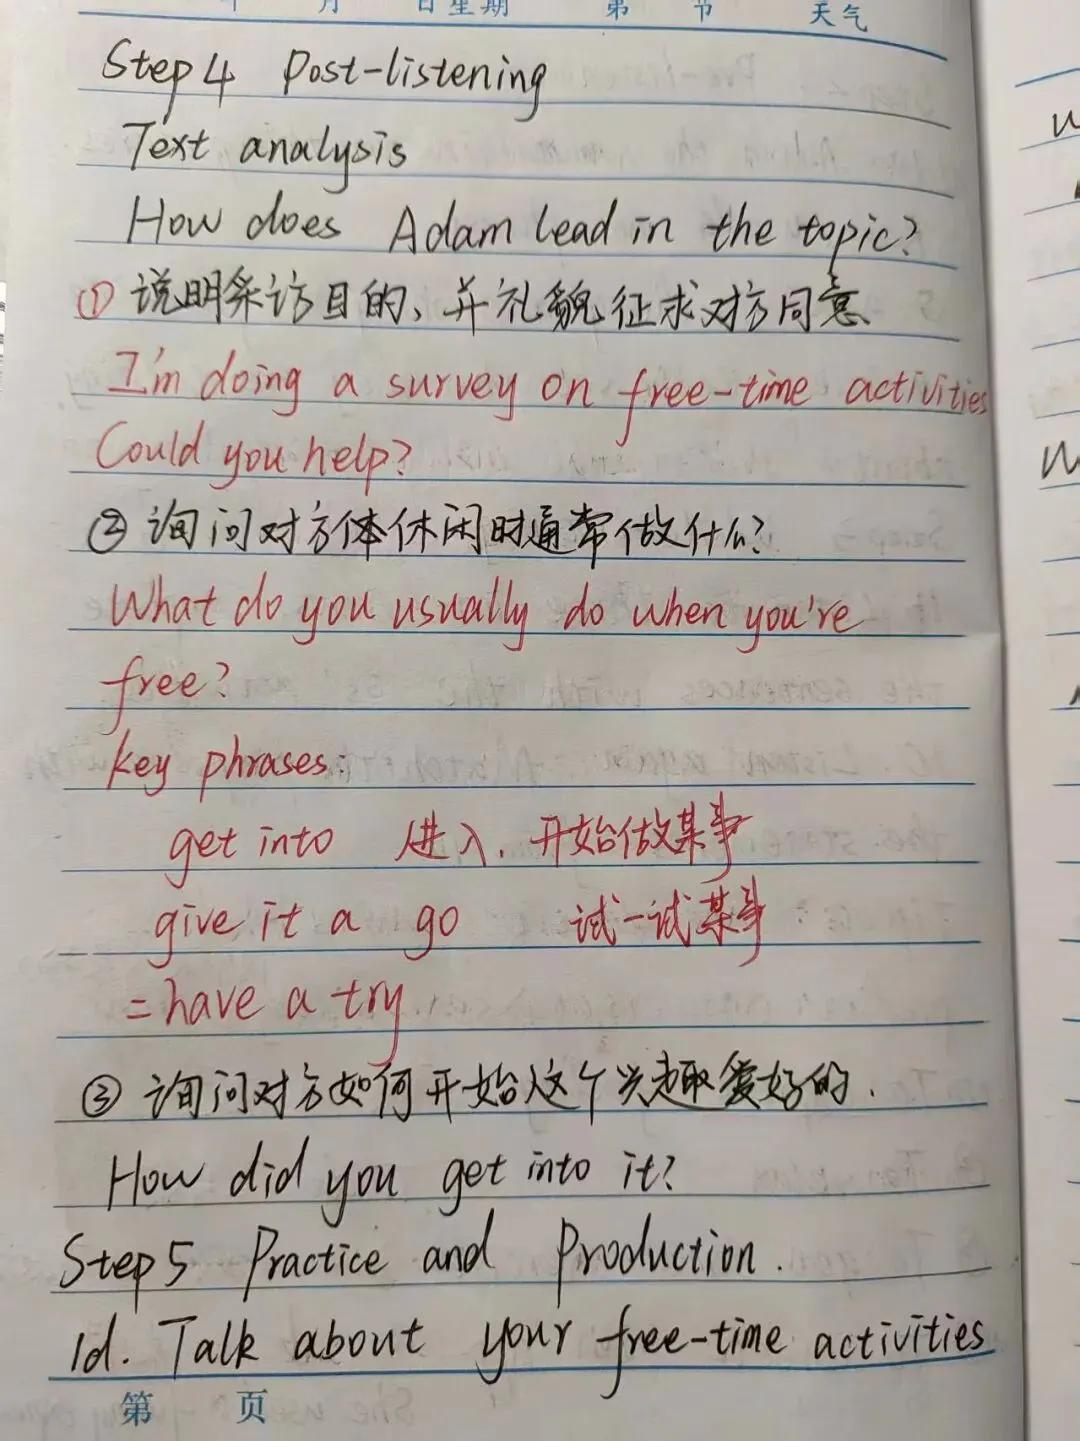 年 月 日星期 第 节 天气
Step 4 Post-listening
Text analysis
How does Adam lead in the topic?
① 说明采访目的、并礼貌征求对方同意
I'm doing a survey on free-time activities
Could you help?
② 询问对方体休闲时通常做什么?
What do you usually do when you're
free?
key phrases:
get into 进入、开始做某事
give it a go 试一试某事
= have a try
③ 询问对方如何开始这个兴趣爱好的.
How did you get into it?
Step 5 Practice and Production.
1d. Talk about your free-time activities
第 页